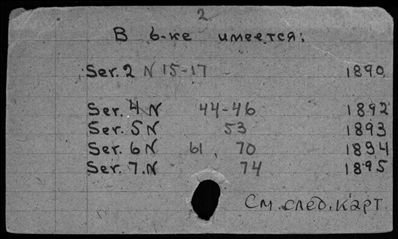 2
В б-ке имеется:
Ser. 2 N 15-17 1890
Ser. 4 N 44-46 1892
Ser. 5 N 53 1893
Ser. 6 N 61, 70 1894
Ser. 7. N 74 1895
См. след. карт.